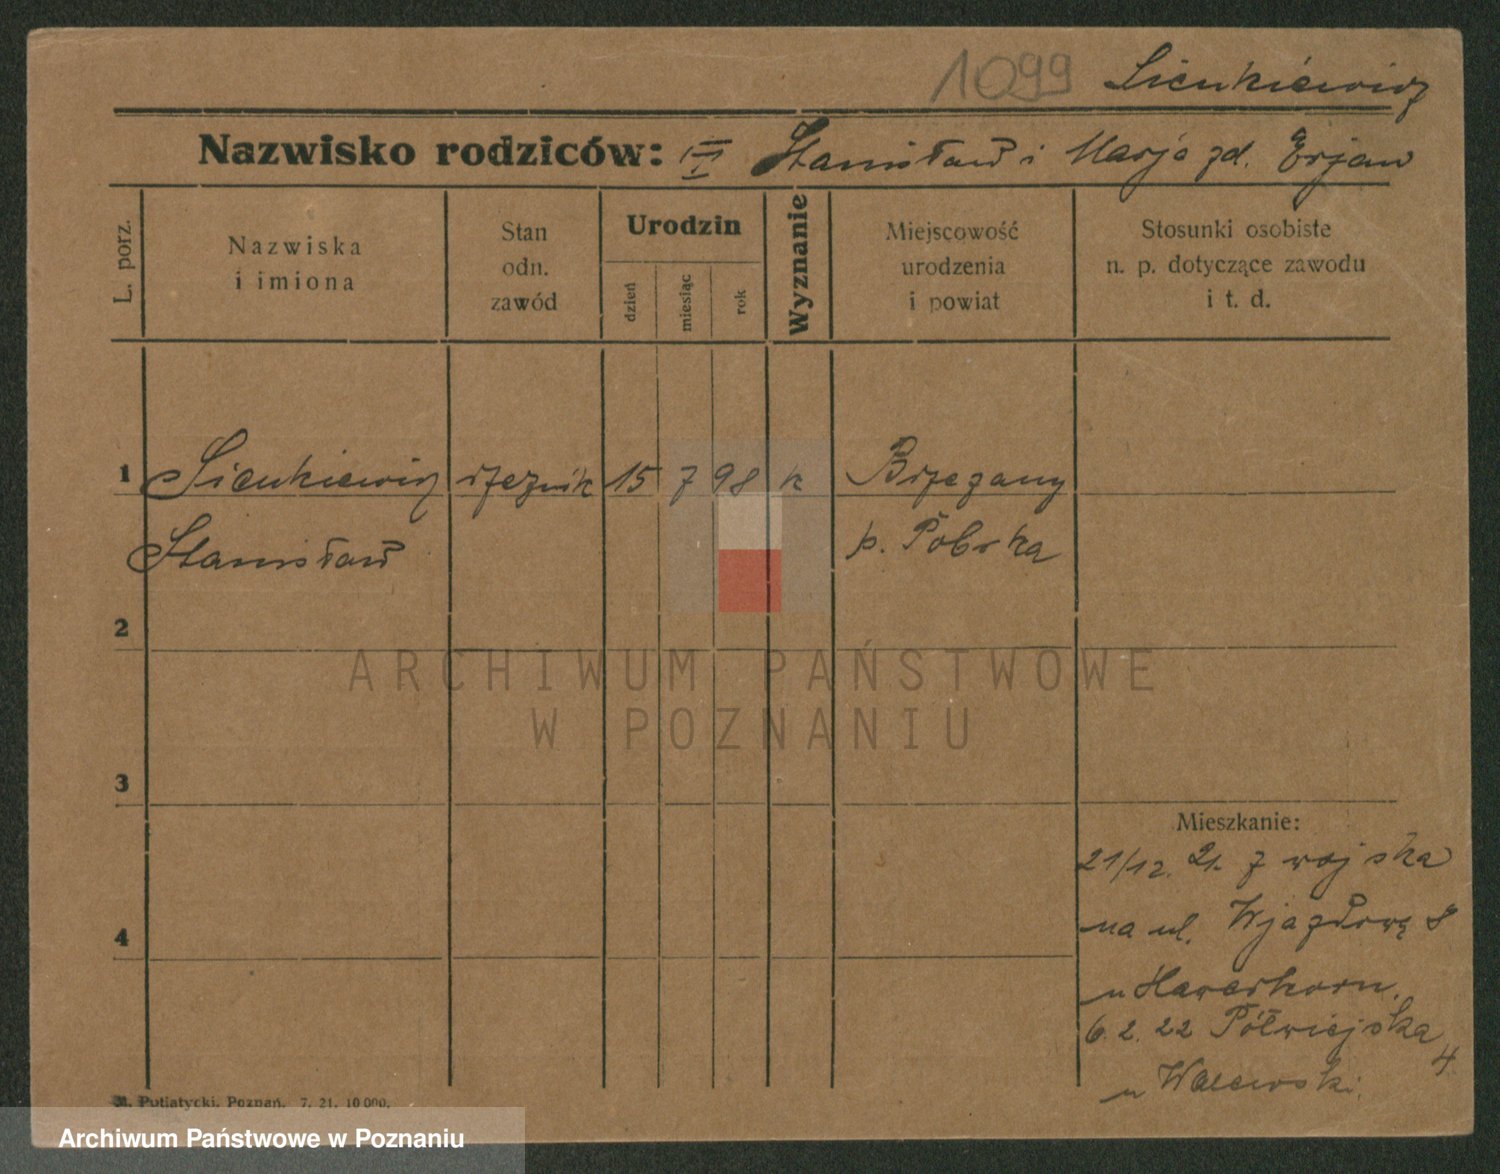 1099 Sienkiewicz
Nazwisko rodziców: III Stanisław i Marja zd. Erjaw
L. porz.
Nazwiska
i imiona
Stan
odn.
zawód
Urodzin
dzień
miesiąc
rok
Wyznanie
Miejscowość
urodzenia
i powiat
Stosunki osobiste
n. p. dotyczące zawodu
i t. d.
1 Sienkiewicz rzeźnik 15 7 98 k Brzezany
Stanisław p. Pobrka
2
ARCHIWUM PAŃSTWOWE
W POZNANIU
3
Mieszkanie:
21/12. 21. z wojska
4
na ul. Wjazdową 8
u Haverkorn.
6. 2. 22 Półwiejska 4
u Walewski.
Putiatycki, Poznań. 7. 21. 10 000.
Archiwum Państwowe w Poznaniu